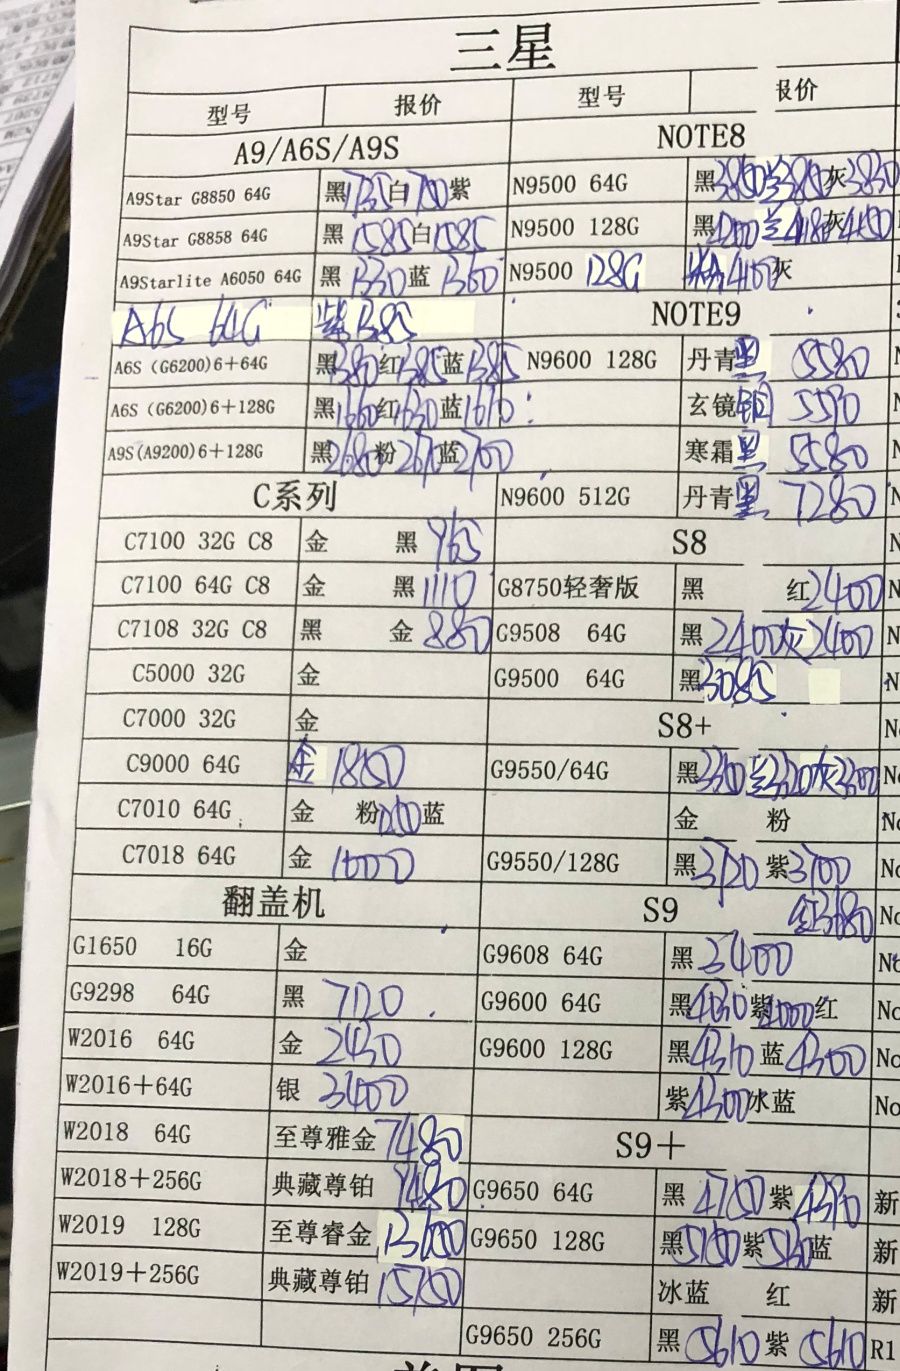 三星
型号 报价 型号 报价
A9/A6S/A9S NOTE8
A9Star G8850 64G 黑1735白1700紫 N9500 64G 黑3860兰3860灰3830
A9Star G8858 64G 黑1585白1585 N9500 128G 黑4200兰4180灰4150
A9Starlite A6050 64G 黑1330蓝1360 N9500 128G 粉4100灰
A6S 64G 紫1385 NOTE9
A6S (G6200)6+64G 黑1380红1385蓝1385 N9600 128G 丹青黑 5580
A6S (G6200)6+128G 黑1660红1630蓝1610 玄镜铜 5590
A9S(A9200)6+128G 黑2680粉2670蓝2700 寒霜黑 5580
C系列 N9600 512G 丹青黑 7280
C7100 32G C8 金 黑 965 S8
C7100 64G C8 金 黑 1110 G8750轻奢版 黑 红2400
C7108 32G C8 黑 金 880 G9508 64G 黑2400灰2400
C5000 32G 金 G9500 64G 黑3085
C7000 32G 金 S8+
C9000 64G 金 1850 G9550/64G 黑3310兰3320灰3300
C7010 64G 金 粉 蓝 金 粉
C7018 64G 金 1000 G9550/128G 黑3720 紫3700
翻盖机 S9 红3980
G1650 16G 金 G9608 64G 黑 3400
G9298 64G 黑 7120 G9600 64G 黑4030紫4000红
W2016 64G 金 2430 G9600 128G 黑4310蓝4300
W2016+64G 银 3400 紫4300冰蓝
W2018 64G 至尊雅金7480 S9+
W2018+256G 典藏尊铂 9480 G9650 64G 黑 4750紫4390 新
W2019 128G 至尊睿金 G9650 128G 黑5150紫5130蓝 新
W2019+256G 典藏尊铂15750 冰蓝 红 新
G9650 256G 黑 5610 紫 5610 R1